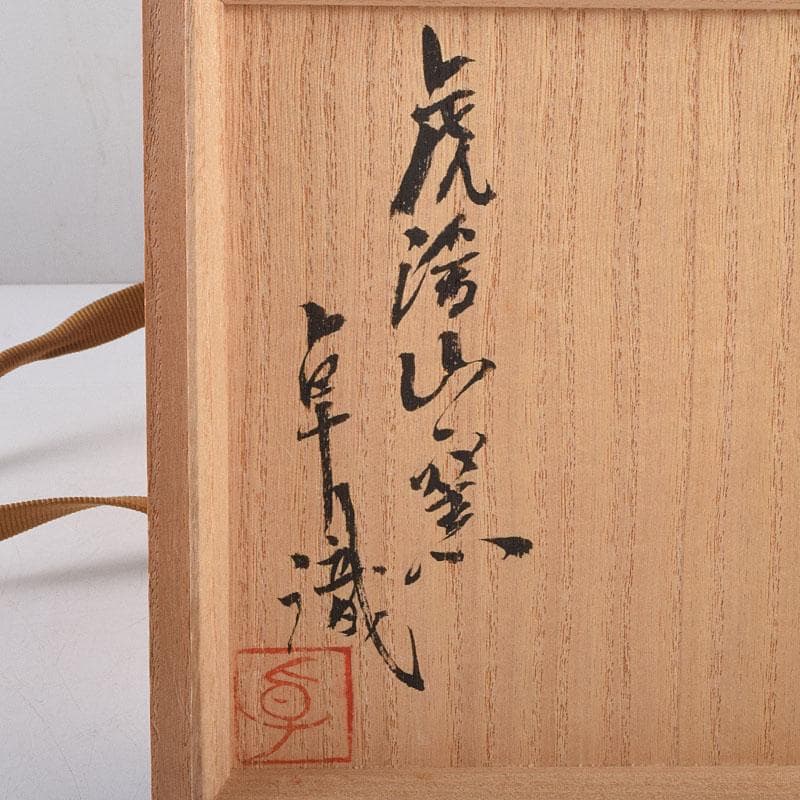 虎渓山窯
卓司識
卓